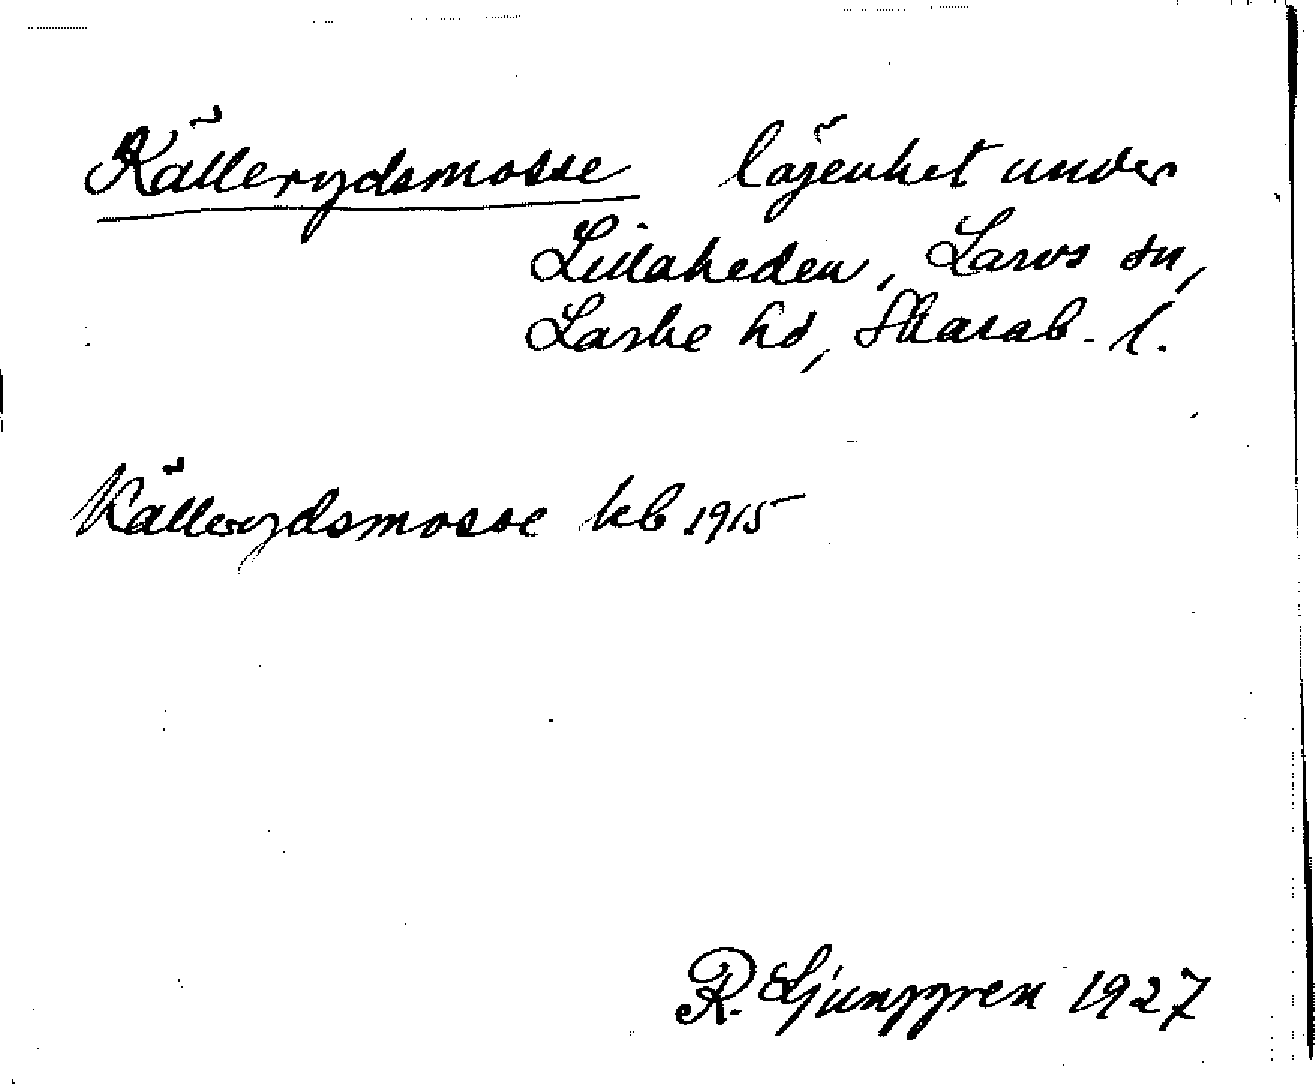 Källerydsmosse lägenhet under
Lillaheden, Larvs sn,
Laske hd, Skarab. l.
Källerydsmosse kb 1915
R. Ljunggren 1927